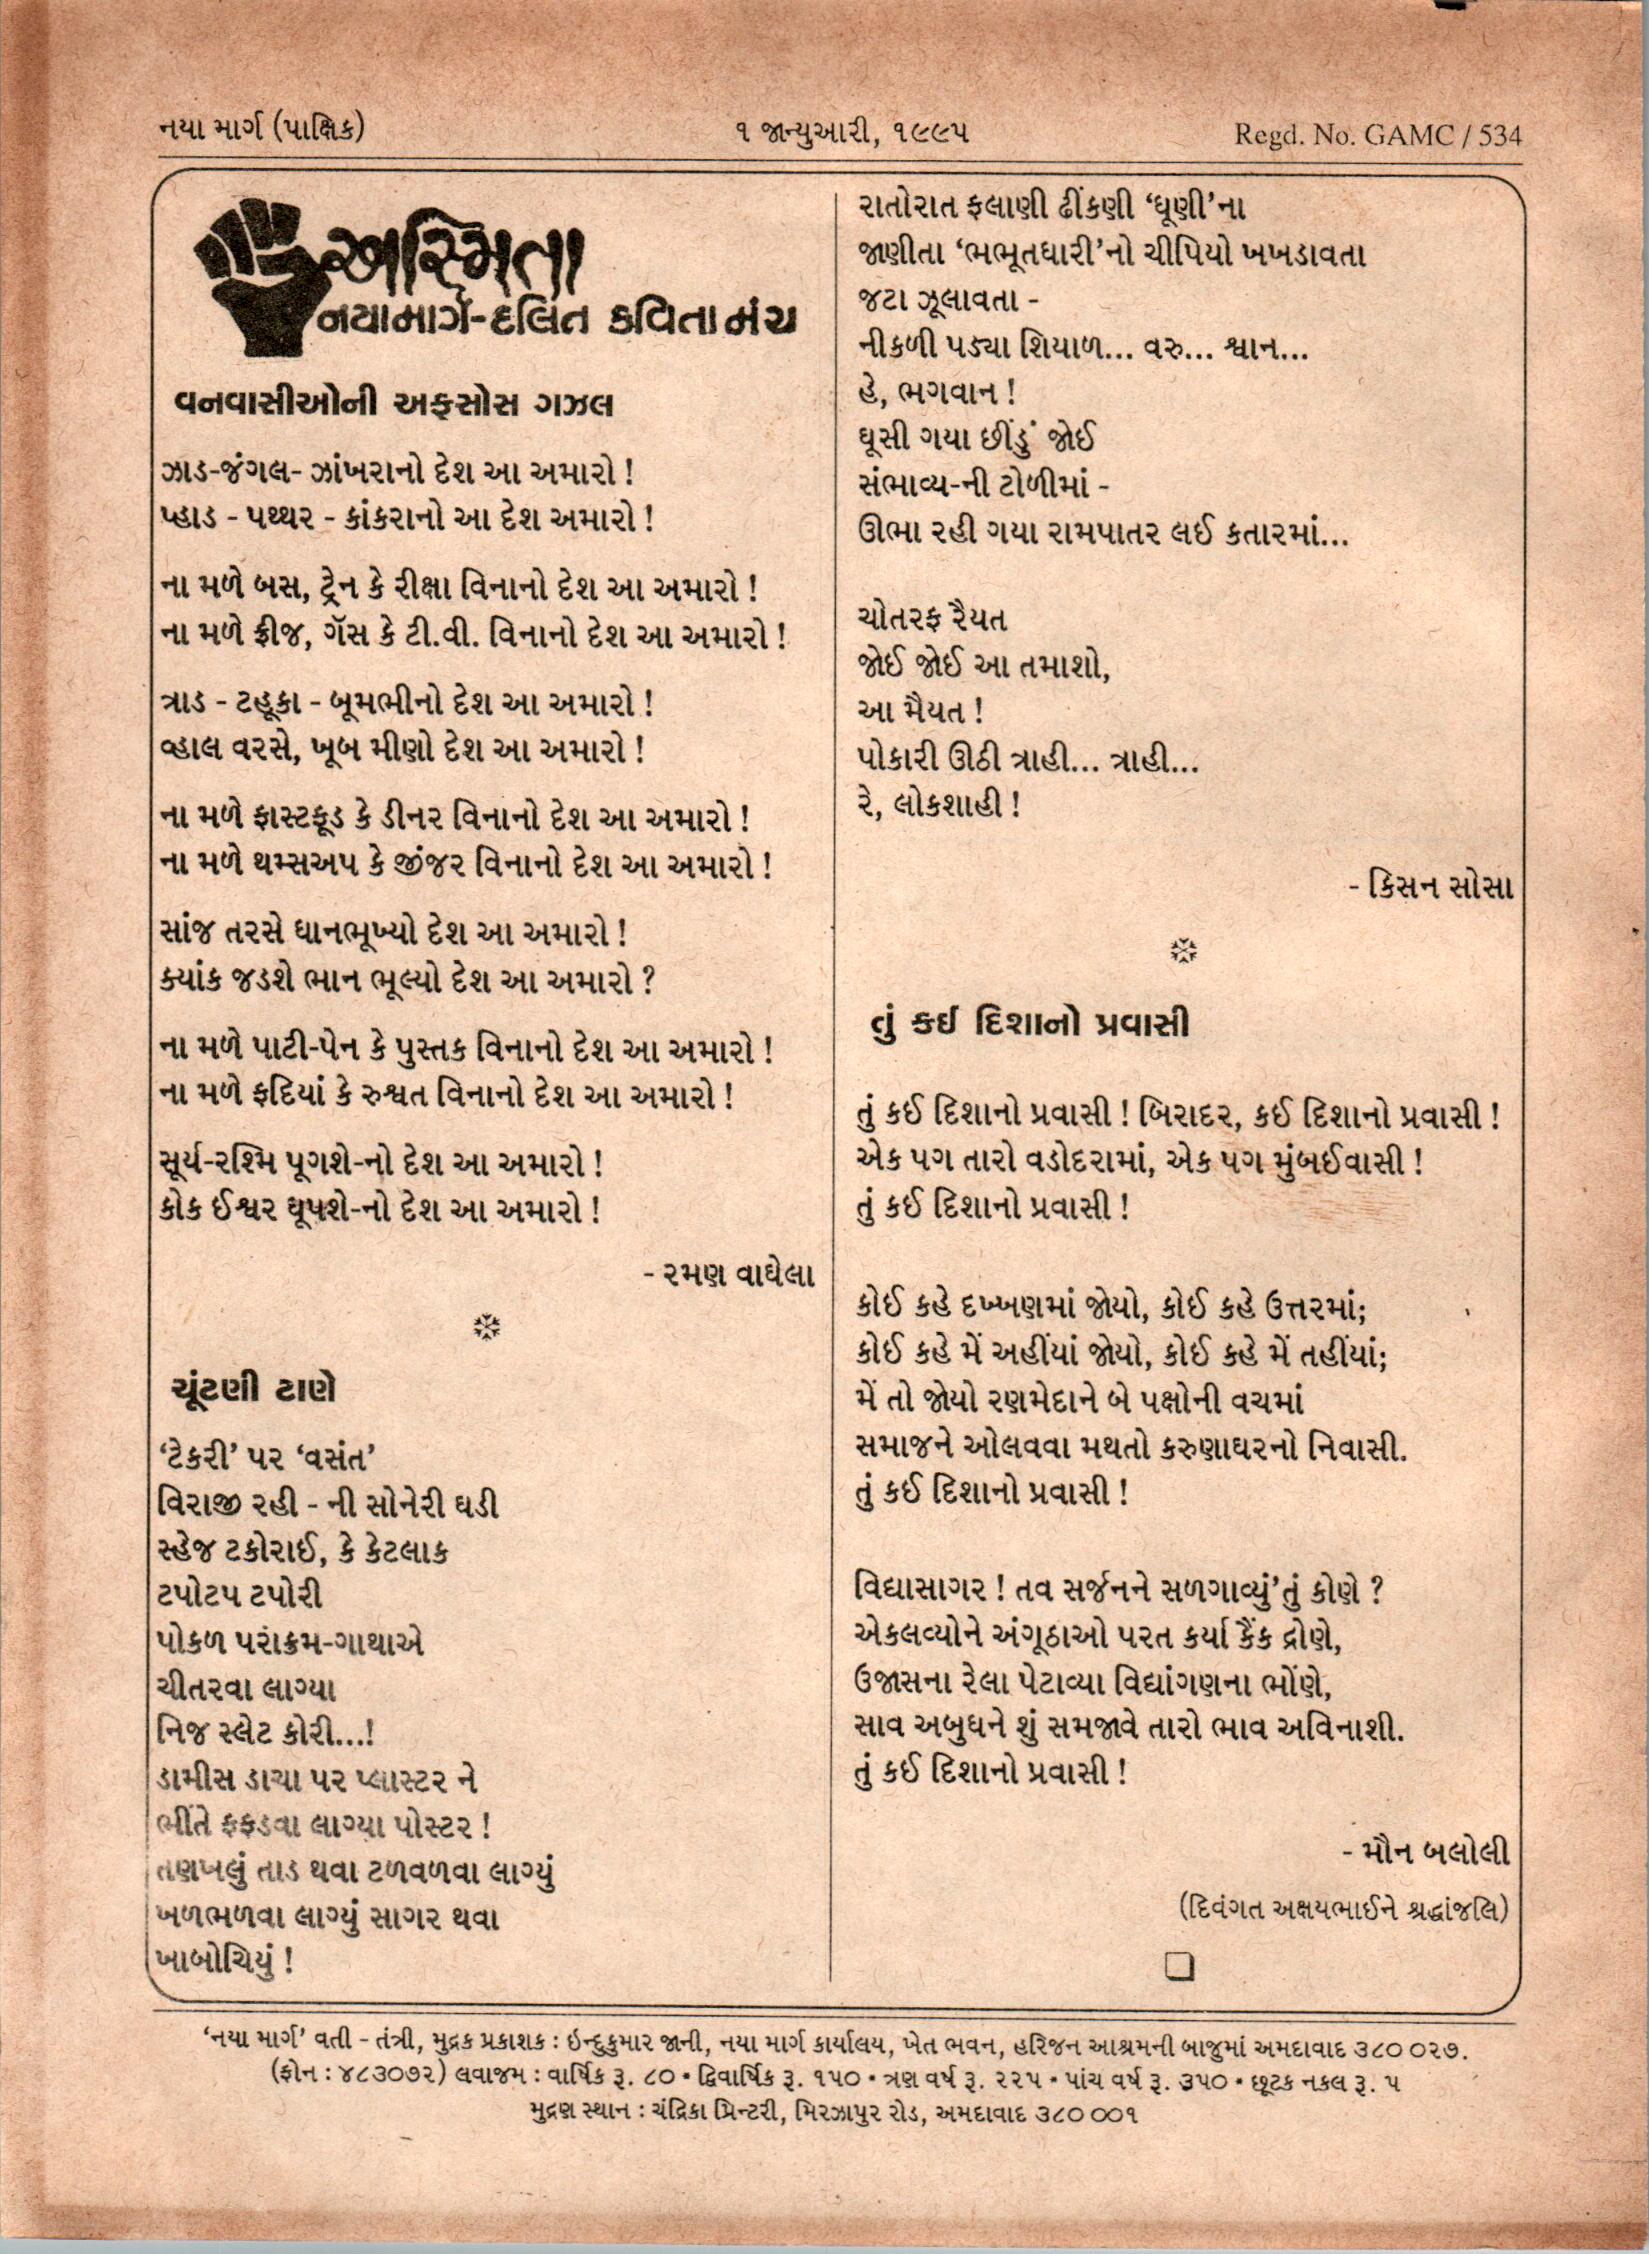 નયા માર્ગ (પાક્ષિક)
૧ જાન્યુઆરી, ૧૯૯૫
Regd. No. GAMC / 534
અસ્મિતા
નયામાર્ગ-દલિત કવિતા મંચ
વનવાસીઓની અફસોસ ગઝલ
ઝાડ-જંગલ- ઝાંખરાનો દેશ આ અમારો !
પ્હાડ - પથ્થર - કાંકરાનો આ દેશ અમારો !
ના મળે બસ, ટ્રેન કે રીક્ષા વિનાનો દેશ આ અમારો !
ના મળે ફ્રીજ, ગૅસ કે ટી.વી. વિનાનો દેશ આ અમારો !
ત્રાડ - ટહૂકા - બૂમભીનો દેશ આ અમારો !
વ્હાલ વરસે, ખૂબ મીણો દેશ આ અમારો !
ના મળે ફાસ્ટફૂડ કે ડીનર વિનાનો દેશ આ અમારો !
ના મળે થમ્સઅપ કે જીંજર વિનાનો દેશ આ અમારો !
સાંજ તરસે ધાનભૂખ્યો દેશ આ અમારો !
ક્યાંક જડશે ભાન ભૂલ્યો દેશ આ અમારો ?
ના મળે પાટી-પેન કે પુસ્તક વિનાનો દેશ આ અમારો !
ના મળે ફદિયાં કે રુશ્વત વિનાનો દેશ આ અમારો !
સૂર્ય-રશ્મિ પૂગશે-નો દેશ આ અમારો !
કોક ઈશ્વર ધૂપશે-નો દેશ આ અમારો !
- રમણ વાઘેલા
ચૂંટણી ટાણે
‘ટેકરી’ પર ‘વસંત’
વિરાજી રહી - ની સોનેરી ઘડી
સ્હેજ ટકોરાઈ, કે કેટલાક
ટપોટપ ટપોરી
પોકળ પરાક્રમ-ગાથાએ
ચીતરવા લાગ્યા
નિજ સ્લેટ કોરી...!
ડામીસ ડાચા પર પ્લાસ્ટર ને
ભીંતે ફફડવા લાગ્યા પોસ્ટર !
તણખલું તાડ થવા ટળવળવા લાગ્યું
ખળભળવા લાગ્યું સાગર થવા
ખાબોચિયું !
રાતોરાત ફલાણી ઢીંકણી ‘ધૂણી’ના
જાણીતા ‘ભભૂતધારી’નો ચીપિયો ખખડાવતા
જટા ઝૂલાવતા -
નીકળી પડ્યા શિયાળ... વરુ... શ્વાન...
હે, ભગવાન !
ઘૂસી ગયા છીંડું જોઈ
સંભાવ્ય-ની ટોળીમાં -
ઊભા રહી ગયા રામપાતર લઈ કતારમાં...
ચોતરફ રૈયત
જોઈ જોઈ આ તમાશો,
આ મૈયત !
પોકારી ઊઠી ત્રાહી... ત્રાહી...
રે, લોકશાહી !
- કિસન સોસા
તું કઈ દિશાનો પ્રવાસી
તું કઈ દિશાનો પ્રવાસી ! બિરાદર, કઈ દિશાનો પ્રવાસી !
એક પગ તારો વડોદરામાં, એક પગ મુંબઈવાસી !
તું કઈ દિશાનો પ્રવાસી !
કોઈ કહે દખ્ખણમાં જોયો, કોઈ કહે ઉત્તરમાં;
કોઈ કહે મેં અહીંયાં જોયો, કોઈ કહે મેં તહીંયાં;
મેં તો જોયો રણમેદાને બે પક્ષોની વચમાં
સમાજને ઓલવવા મથતો કરુણાઘરનો નિવાસી.
તું કઈ દિશાનો પ્રવાસી !
વિદ્યાસાગર ! તવ સર્જનને સળગાવ્યું’તું કોણે ?
એકલવ્યોને અંગૂઠાઓ પરત કર્યા કૈંક દ્રોણે,
ઉજાસના રેલા પેટાવ્યા વિદ્યાંગણના ભોંણે,
સાવ અબુધને શું સમજાવે તારો ભાવ અવિનાશી.
તું કઈ દિશાનો પ્રવાસી !
- મૌન બલોલી
(દિવંગત અક્ષયભાઈને શ્રદ્ધાંજલિ)
‘નયા માર્ગ’ વતી - તંત્રી, મુદ્રક પ્રકાશક : ઇન્દુકુમાર જાની, નયા માર્ગ કાર્યાલય, ખેત ભવન, હરિજન આશ્રમની બાજુમાં અમદાવાદ ૩૮૦ ૦૨૭.
(ફોન : ૪૮૩૦૭૨) લવાજમ : વાર્ષિક રૂ. ૮૦ • દ્વિવાર્ષિક રૂ. ૧૫૦ • ત્રણ વર્ષ રૂ. ૨૨૫ • પાંચ વર્ષ રૂ. ૩૫૦ • છૂટક નકલ રૂ. ૫
મુદ્રણ સ્થાન : ચંદ્રિકા પ્રિન્ટરી, મિરઝાપુર રોડ, અમદાવાદ ૩૮૦ ૦૦૧